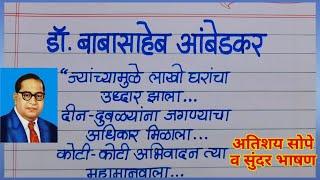 डॉ. बाबासाहेब आंबेडकर
"ज्यांच्यामुळे लाखो घरांचा
उध्दार झाला...
दीन-दुबळ्यांना जगण्याचा
अधिकार मिळाला...
कोटी-कोटी अभिवादन त्या
महामानवाला...
अतिशय सोपे
व सुंदर भाषण